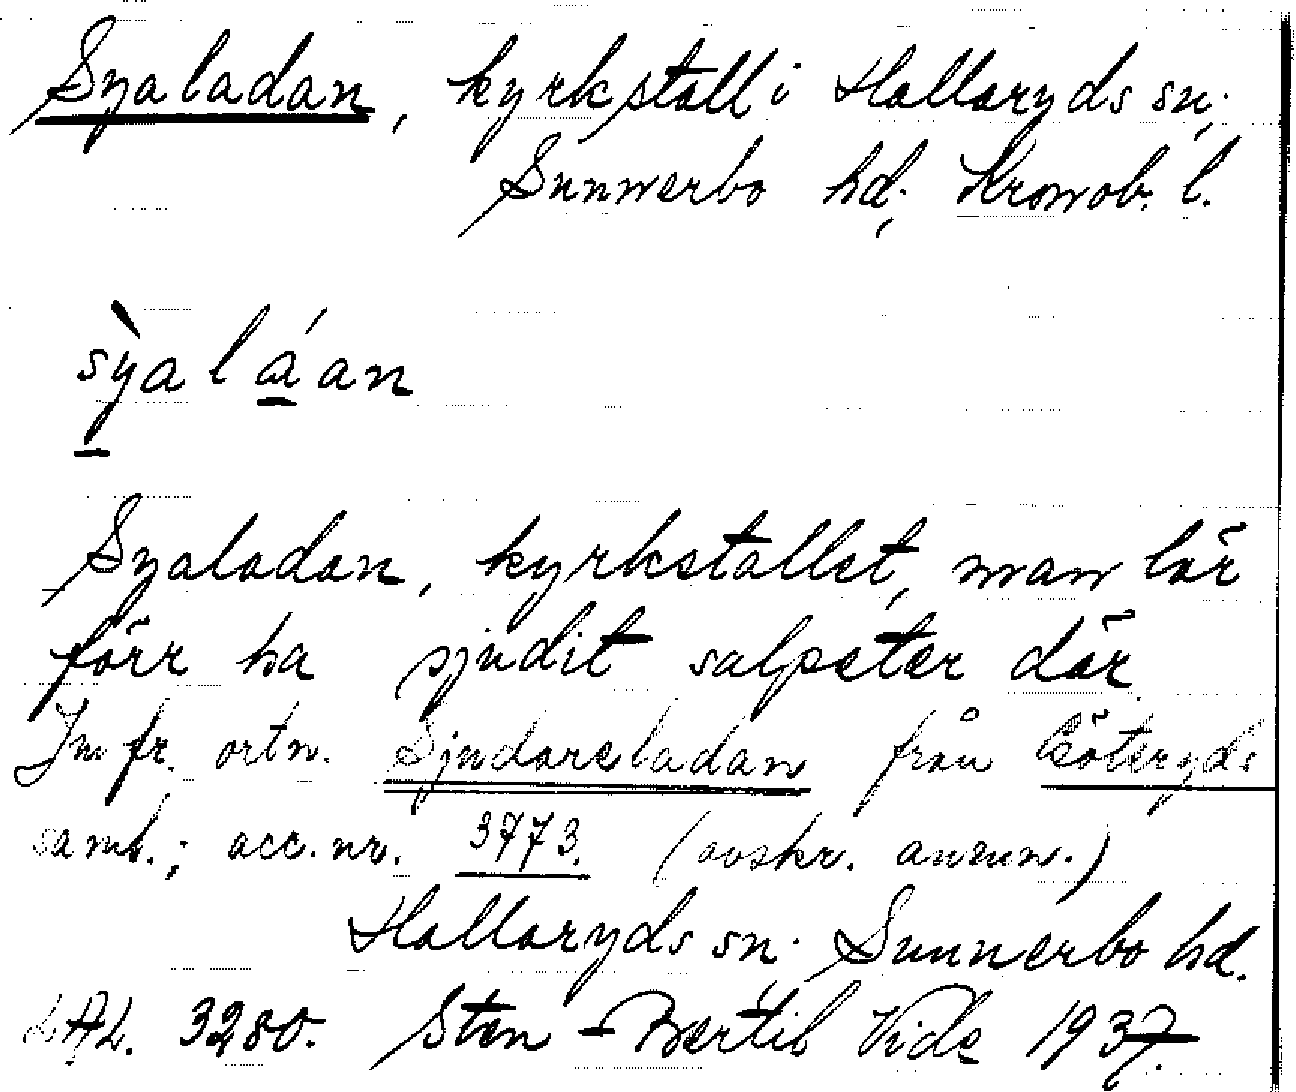 Syaladan, kyrkstall i Hallaryds sn;
Sunnerbo hd; Kronob. l.
sỳaláan
Syaladan, kyrkstallet, man lär
förr ha sjudit salpeter där
Jmfr. ortn. Sjudareladan från Göteryds
saml.; acc.nr. 3773. (avskr. anm.)
Hallaryds sn. Sunnerbo hd.
LAL. 3280. Sten-Bertil Vide 1937.